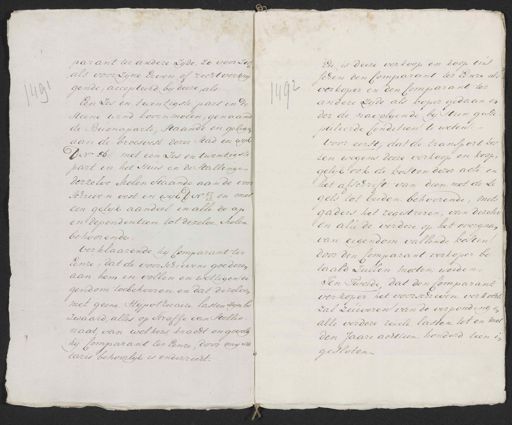 1491
parant ter andere zyde, zo voor Zig
als voor Zyne Erven of regtverkry
gende, accepteerd by deeze, als
Een Zes en twintigste part in de
steene wind koorn molen, genaamd
de Buonaparte, staande en geleegen
aan de
met een Zes en twintigste
part in het Huis en de Stallinge
derzelve Molen staande aan de voor
schreven vest en
een gelyk aandeel in alle de ap
en dependentien tot dezelve Molen
behoorende.
Verklaarende hy Comparant ter
Eenre, dat de voorschreevene goederen
aan hem in vollen en wettigen ei
gendom toebehooren en dat dezelve
met geene Hypothecaire lasten zyn be
zwaard, alles op straffe van Stellio
naat, van welkers kragt en gevolg
hy Comparant ter Eenre door my no
taris behoorlyk is onderrigt.
1492
En is deeze verkoop en koop tus
schen den Comparant ter Eenre als
verkoper en den Comparant ter
andere Zyde als koper gedaan on
der de navolgende by hen gesti
puleerde Conditien te weten:
Voor eerst, dat de transport kos
ten wegens deeze verkoop en koop,
gelyk ook de kosten deezer acte en
het afschrift van dien met de Ze
gels tot beiden behoorende, mits
gaders het registreeren van dezelve
en alle de verdere op het overgaan
van eigendom vallende kosten
door den Comparant verkoper be
taald zullen moeten worden.
Ten tweede, dat den Comparant
verkoper het voorschreven verkochte
zal zuiveren van de verponding en
alle verdere reële lasten tot en met
den Jaare achttien honderd tien in
gesloten.